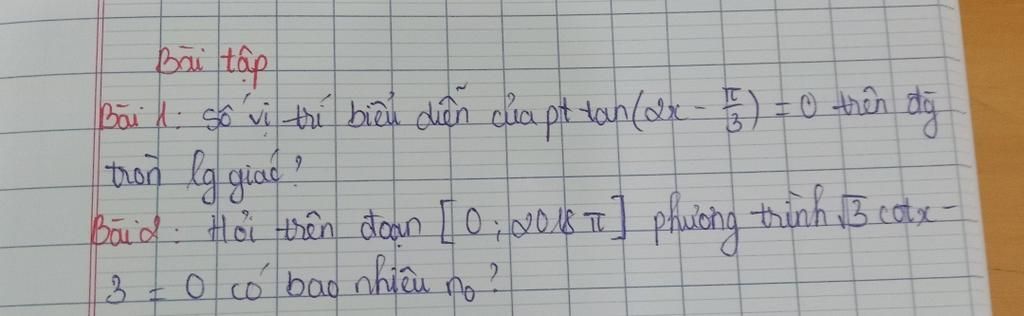 Bài tập
Bài 1: Số vị trí biểu diễn của pt tan(2x - π/3) = 0 trên đg
tròn lg giác?
Bài 2: Hỏi trên đoạn [0; 2018π] phương trình √3 cotx -
3 = 0 có bao nhiêu no?